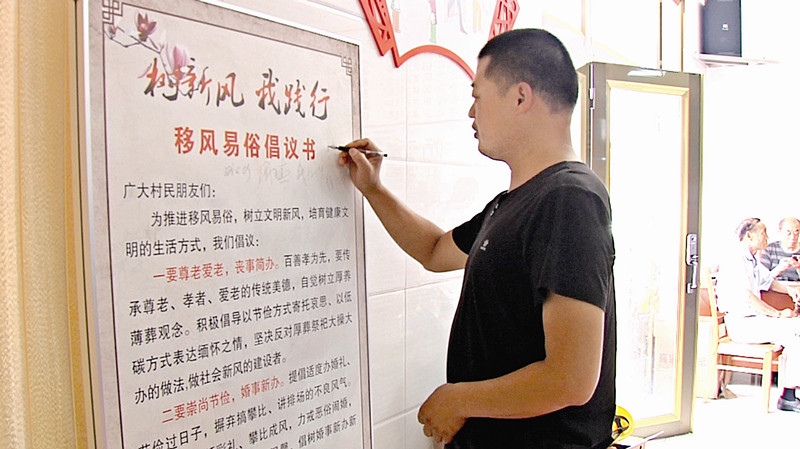 树新风 我践行
移风易俗倡议书
广大村民朋友们：
为推进移风易俗，树立文明新风，培育健康文
明的生活方式，我们倡议：
一要尊老爱老，丧事简办。百善孝为先，要传
承尊老、孝者、爱老的传统美德，自觉树立厚养
薄葬观念。积极倡导以节俭方式寄托哀思、以低
碳方式表达缅怀之情，坚决反对厚葬祭祀大操大
办的做法，做社会新风的建设者。
二要崇尚节俭，婚事新办。提倡适度办婚礼、
节俭过日子，摒弃搞攀比、讲排场的不良风气。
彩礼、攀比成风，力戒恶俗闹婚，
倡树婚事新办新